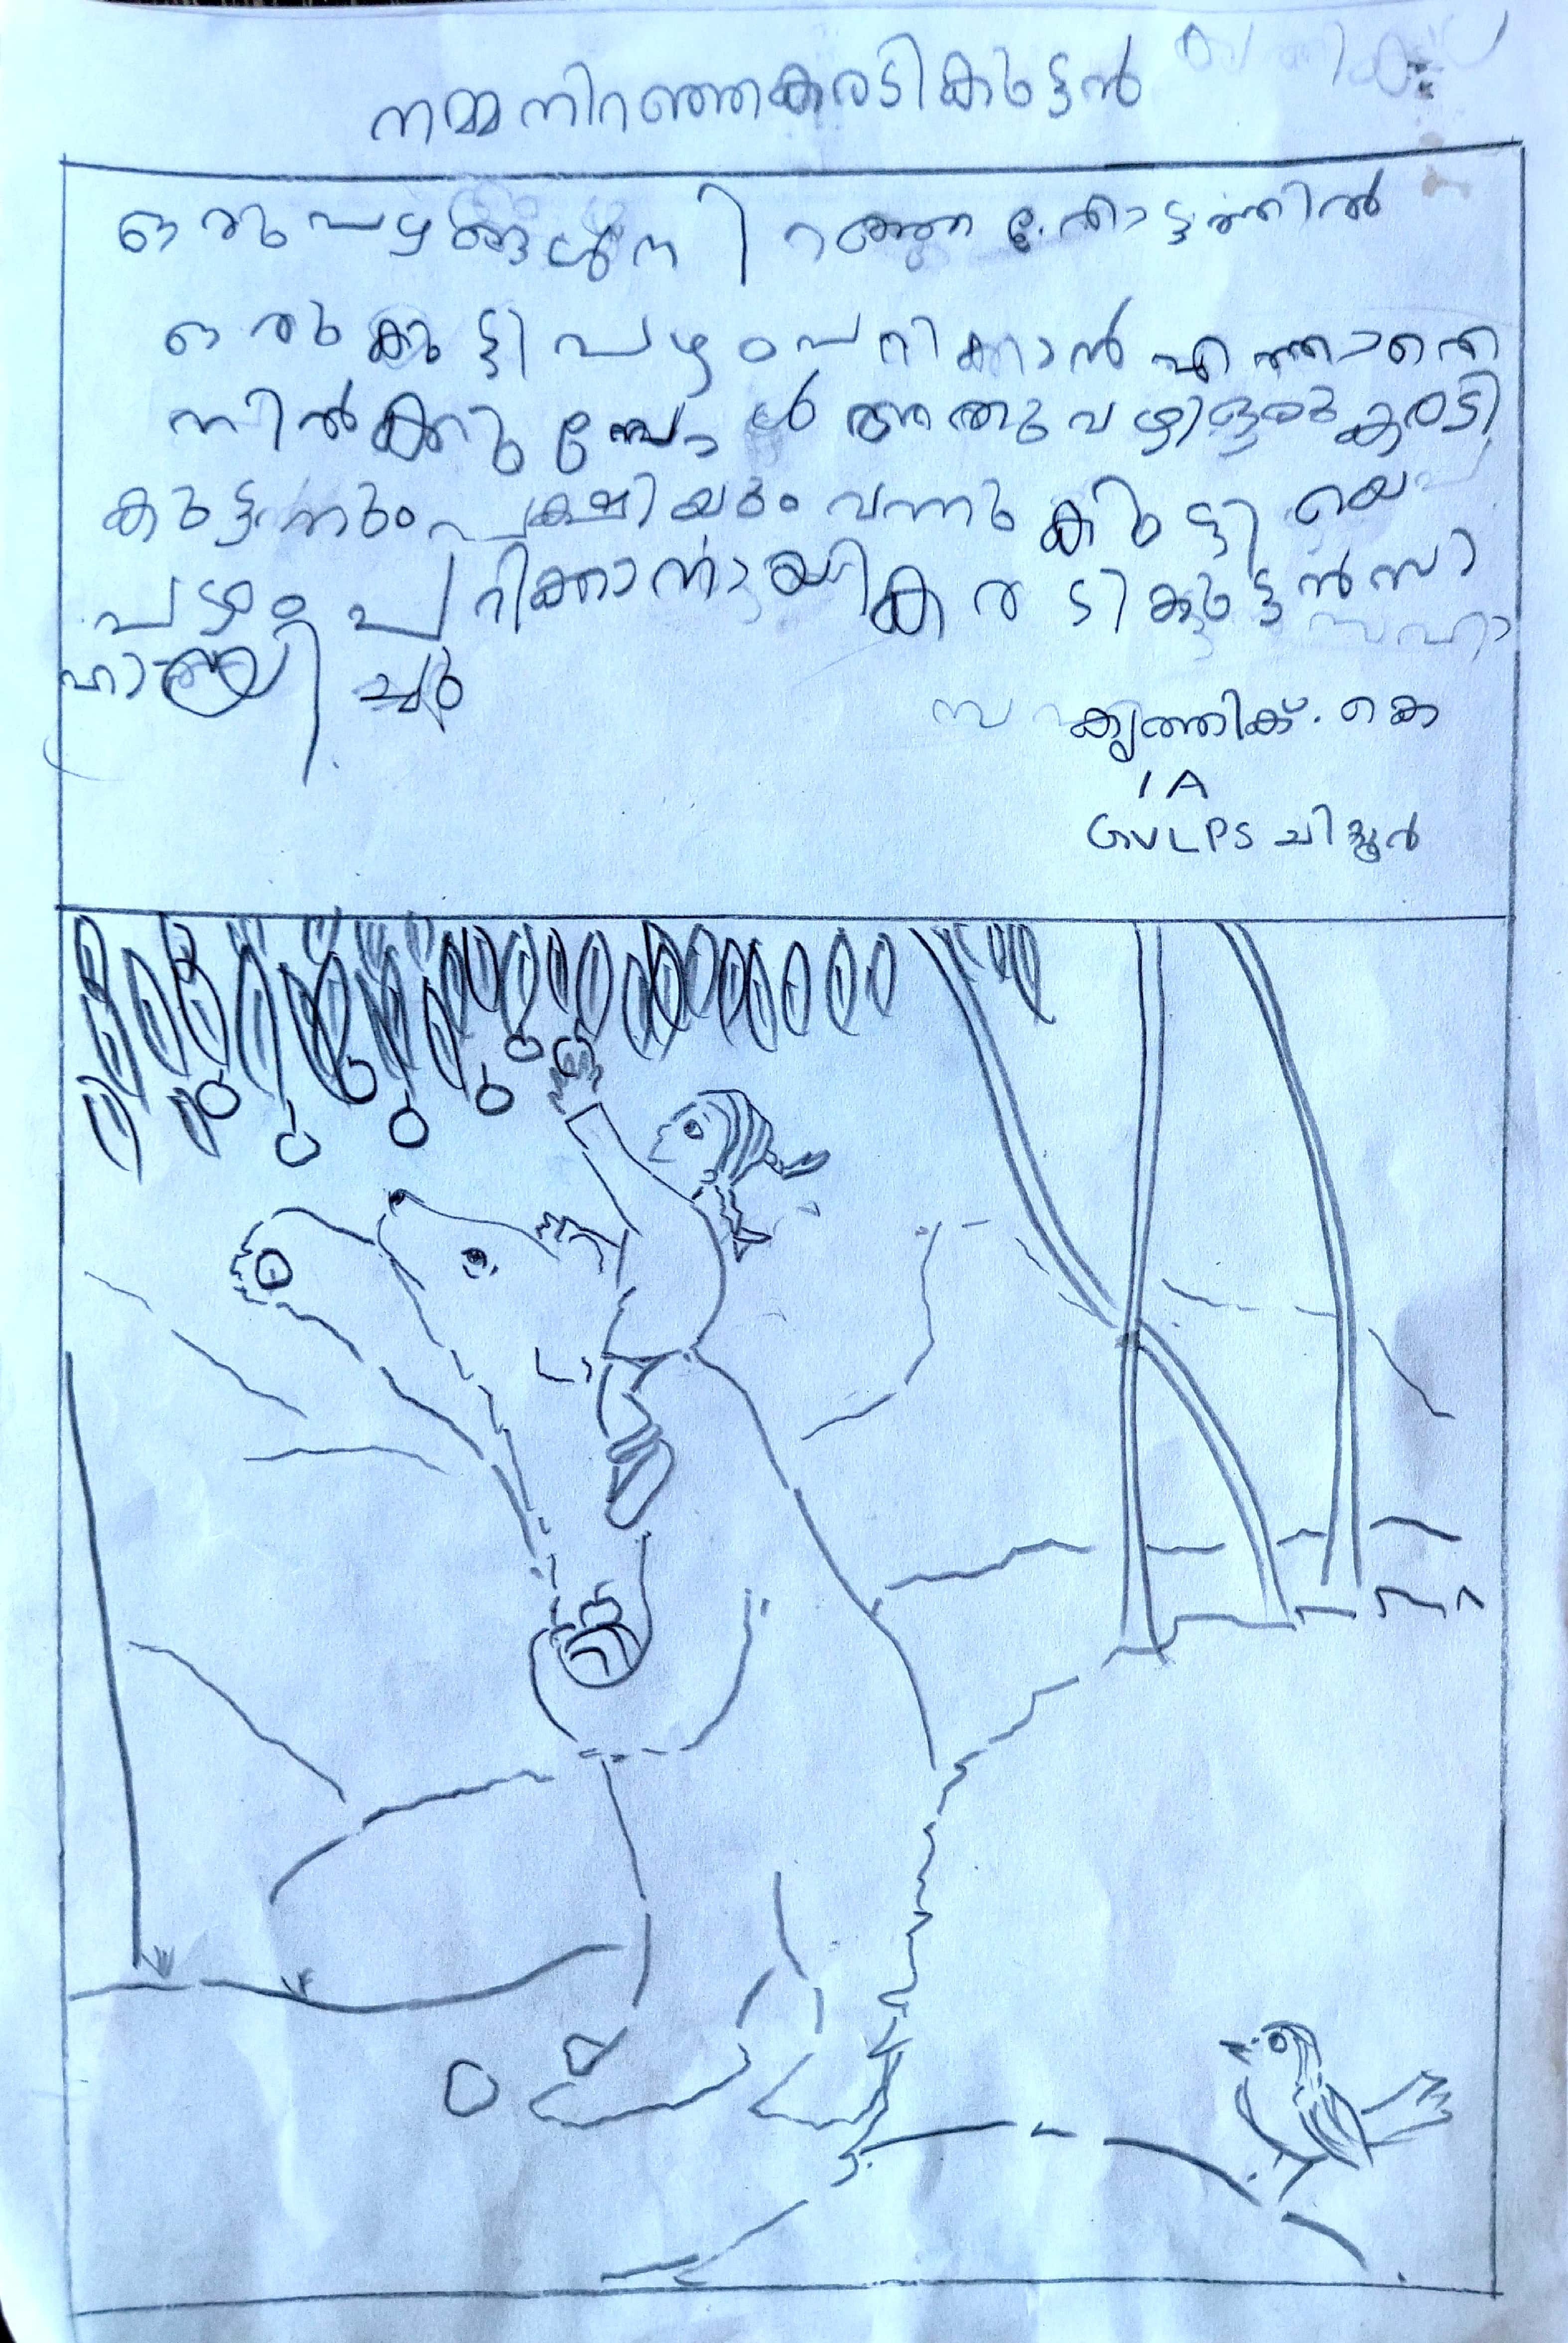 നന്മ നിറഞ്ഞ കരടികുട്ടൻ
ഒരു പഴങ്ങൾ നിറഞ്ഞ തോട്ടത്തിൽ
ഒരു കുട്ടി പഴം പറിക്കാൻ എത്താതെ
നിൽക്കുമ്പോൾ അതുവഴി ഒരു കരടി
കുട്ടനും പക്ഷിയും വന്നു കുട്ടിയെ
പഴം പറിക്കാനായി കരടികുട്ടൻ സാ
ഹായിച്ചു
കൃത്തിക്. കെ
1 A
GVLPS